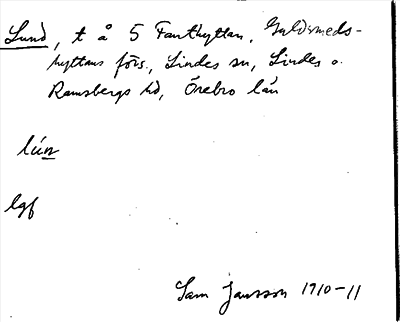 Lund, t å 5 Fanthyttan, Guldsmeds-
hyttans förs., Lindes sn, Lindes o.
Ramsbergs hd, Örebro län
lún
lgf
Sam Jansson 1910-11